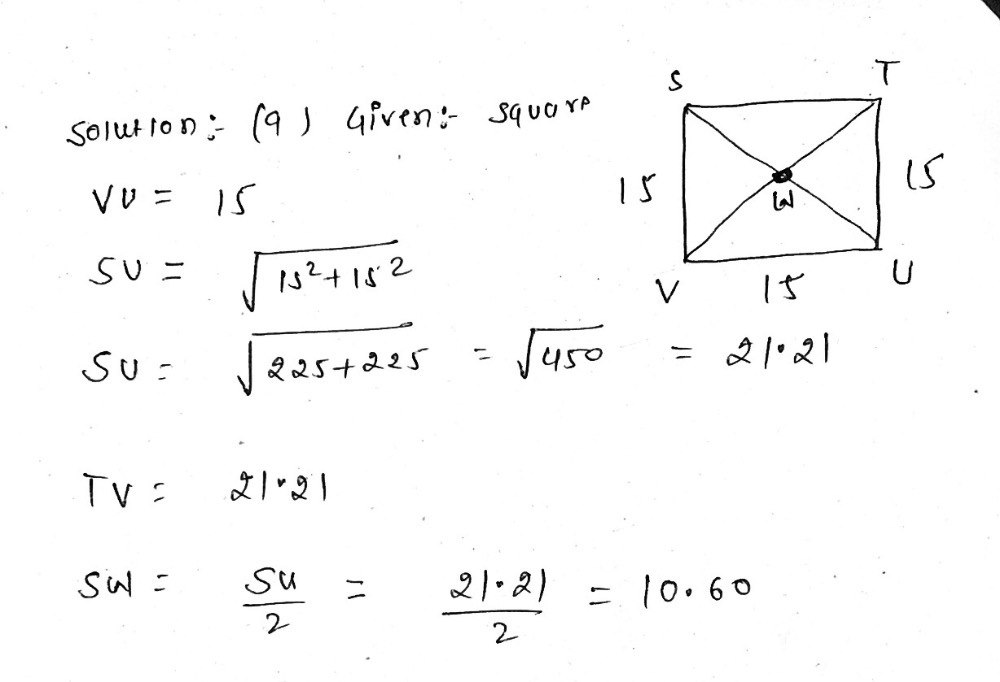 S T
Solution:- (9) Given:- square
VU = 15
15 15
W
SU = √15²+15²
V 15 U
SU = √225+225 = √450 = 21.21
TV = 21.21
SW = SU/2 = 21.21/2 = 10.60